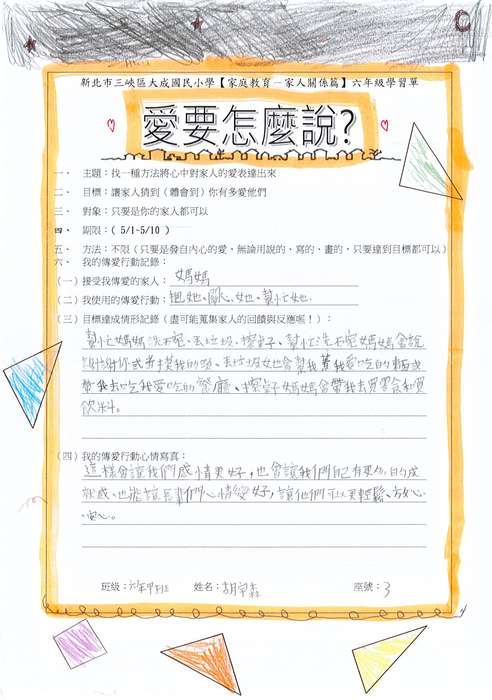 新北市三峽區大成國民小學【家庭教育－家人關係篇】六年級學習單
愛要怎麼說?
一、 主題：找一種方法將心中對家人的愛表達出來
二、 目標：讓家人猜到（體會到）你有多愛他們
三、 對象：只要是你的家人都可以
四、 期限：( 5/1~5/10 )
五、 方法：不限（只要是發自內心的愛，無論用說的、寫的、畫的，只要達到目標都可以）
六、 我的傳愛行動記錄：
（一）接受我傳愛的家人： 媽媽
（二）我使用的傳愛行動：抱她、關心她、幫忙她
（三）目標達成情形記錄（盡可能蒐集家人的回饋與反應喔！）：
幫忙媽媽洗碗、丟垃圾、擦桌子、幫忙洗碗媽媽會說
謝謝你或並摸我的頭、丟垃圾她也會幫我煮我愛吃的
帶我去吃我愛吃的餐廳、擦桌子媽媽會帶我去買零食和買
飲料。
（四）我的傳愛行動心情寫真：
這樣會讓我們感情更好，也會讓我們自己有更多的成
就感、也能讓長輩們心情變好，讓他們可以更輕鬆、放心、
安心。
班級：六年甲班 姓名：胡宇森 座號：3